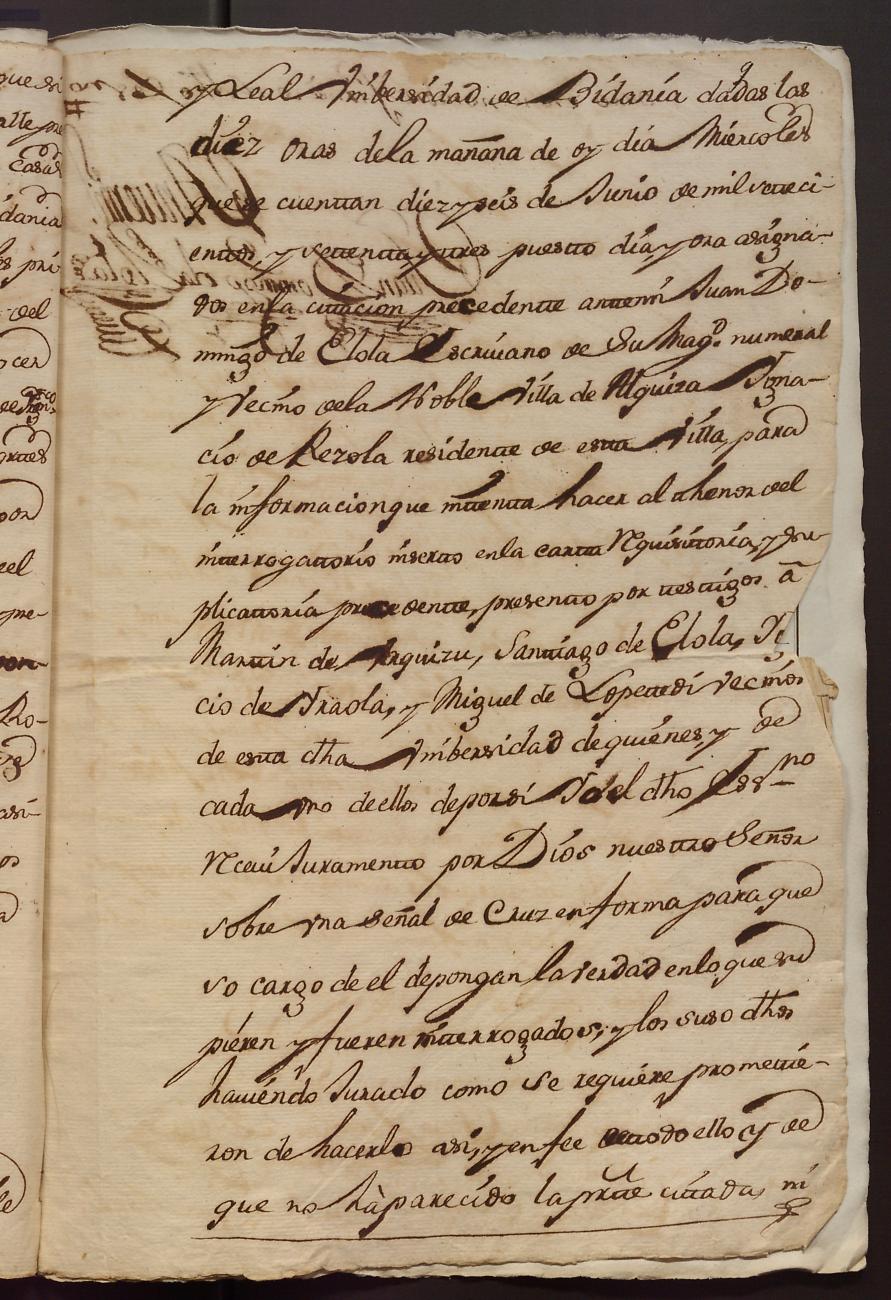 y Leal Vnibersidad de Bidania dadas las
diez oras dela mañana de oy dia Miercoles
que se cuenttan diez y seis de Junio de mil setteci-
enttos, y settentta y tres puestto dia, y ora asigna-
dos en la cittacion precedentte antemi Juan Do-
mingo de Elola Escrivano de Su Magd. numeral
y Vecino dela Noble Villa de Alquiza Igna-
cio de Rezola residentte de estta Villa, para
la informacion que inttentta hacer al thenor del
interrogattorio insertto enla cartta requisittoria, y su-
plicattoria precedentte, presentto por testtigos â
Marttin de Arquizu, Santtiago de Elola, Y
cio de Iraola, y Miguel de Lopettedi vecinos
de estta dha Vnibersidad de quienes, y de
cada vno de ellos deporsi Yo el dho Essno
receui Juramentto por Dios nuesttro Señor
sobre vna señal de Cruz en forma para que
so cargo de el depongan la verdad enlo que su
pieren y fueren intterrogados, y los suso dhos
hauiendo Jurado como se requiere promettie-
ron de hacerlo asi, y en fee de ttodo ello y de
que no hà parecido la partte cittada, ni